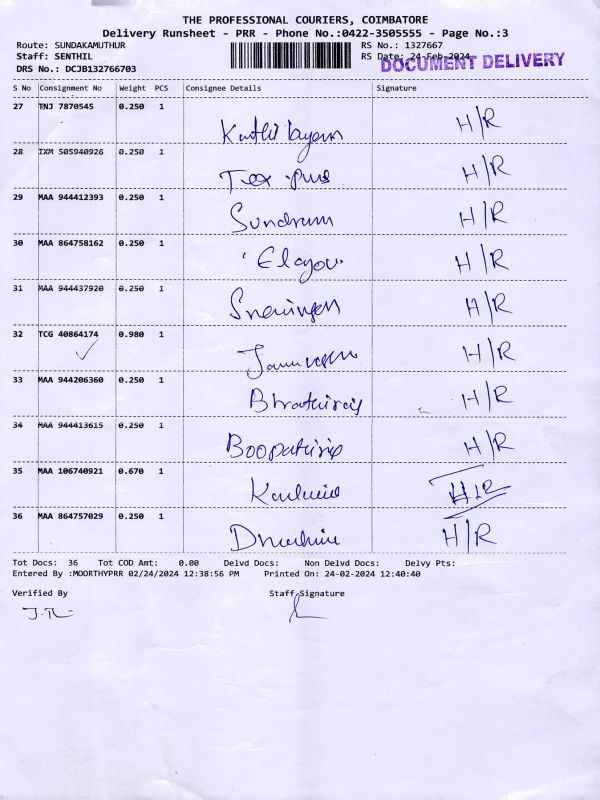 THE PROFESSIONAL COURIERS, COIMBATORE
Delivery Runsheet - PRR - Phone No.:0422-3505555 - Page No.:3
Route: SUNDAKAMUTHUR RS No.: 1327667
Staff: SENTHIL RS Date: 24-Feb-2024
DOCUMENT DELIVERY
DRS No.: DCJB132766703
S No Consignment No Weight PCS Consignee Details Signature
27 TNJ 7870545 0.250 1 H/R
28 IXM 505940926 0.250 1 H/R
29 MAA 944412393 0.250 1 Sundrum H/R
30 MAA 864758162 0.250 1 H/R
31 MAA 944437920 0.250 1 H/R
32 TCG 40864174 0.980 1 H/R
33 MAA 944206360 0.250 1 H/R
34 MAA 944413615 0.250 1 H/R
35 MAA 106740921 0.670 1 H/R
36 MAA 864757029 0.250 1 H/R
Tot Docs: 36 Tot COD Amt: 0.00 Delvd Docs: Non Delvd Docs: Delvy Pts:
Entered By :MOORTHYPRR 02/24/2024 12:38:56 PM Printed On: 24-02-2024 12:40:40
Verified By Staff Signature